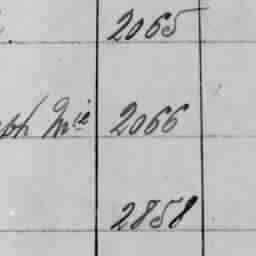 2065
eph Mie 2066
2858